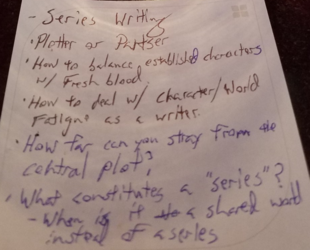 - Series Writing
• Plotter or Pantser
• How to balance established characters
w/ Fresh blood
• How to deal w/ character/World
Fatigue as a writer.
• How far can you stray from the
central plot?
• What constitutes a "series"?
- When is it a shared world
instead of a series